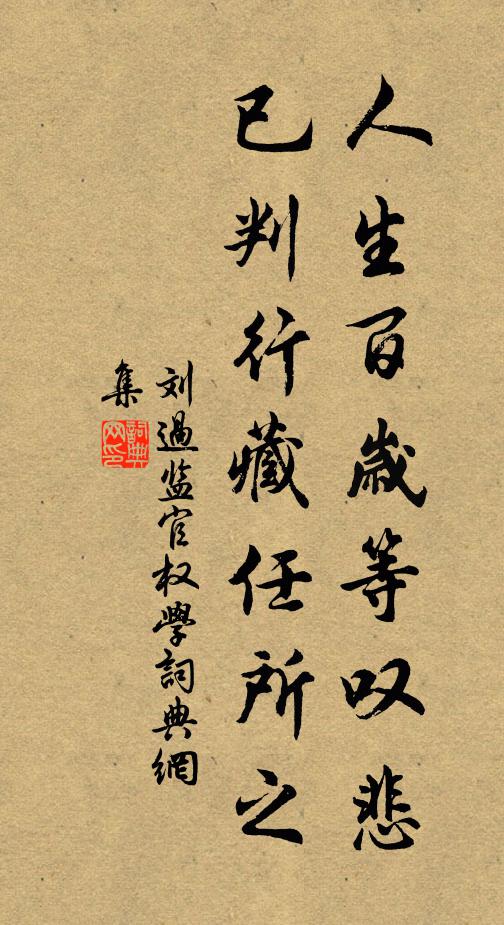 人生百歲等叹悲
已判行藏任所之
刘過监官权學詞典網
集
詞典
网印